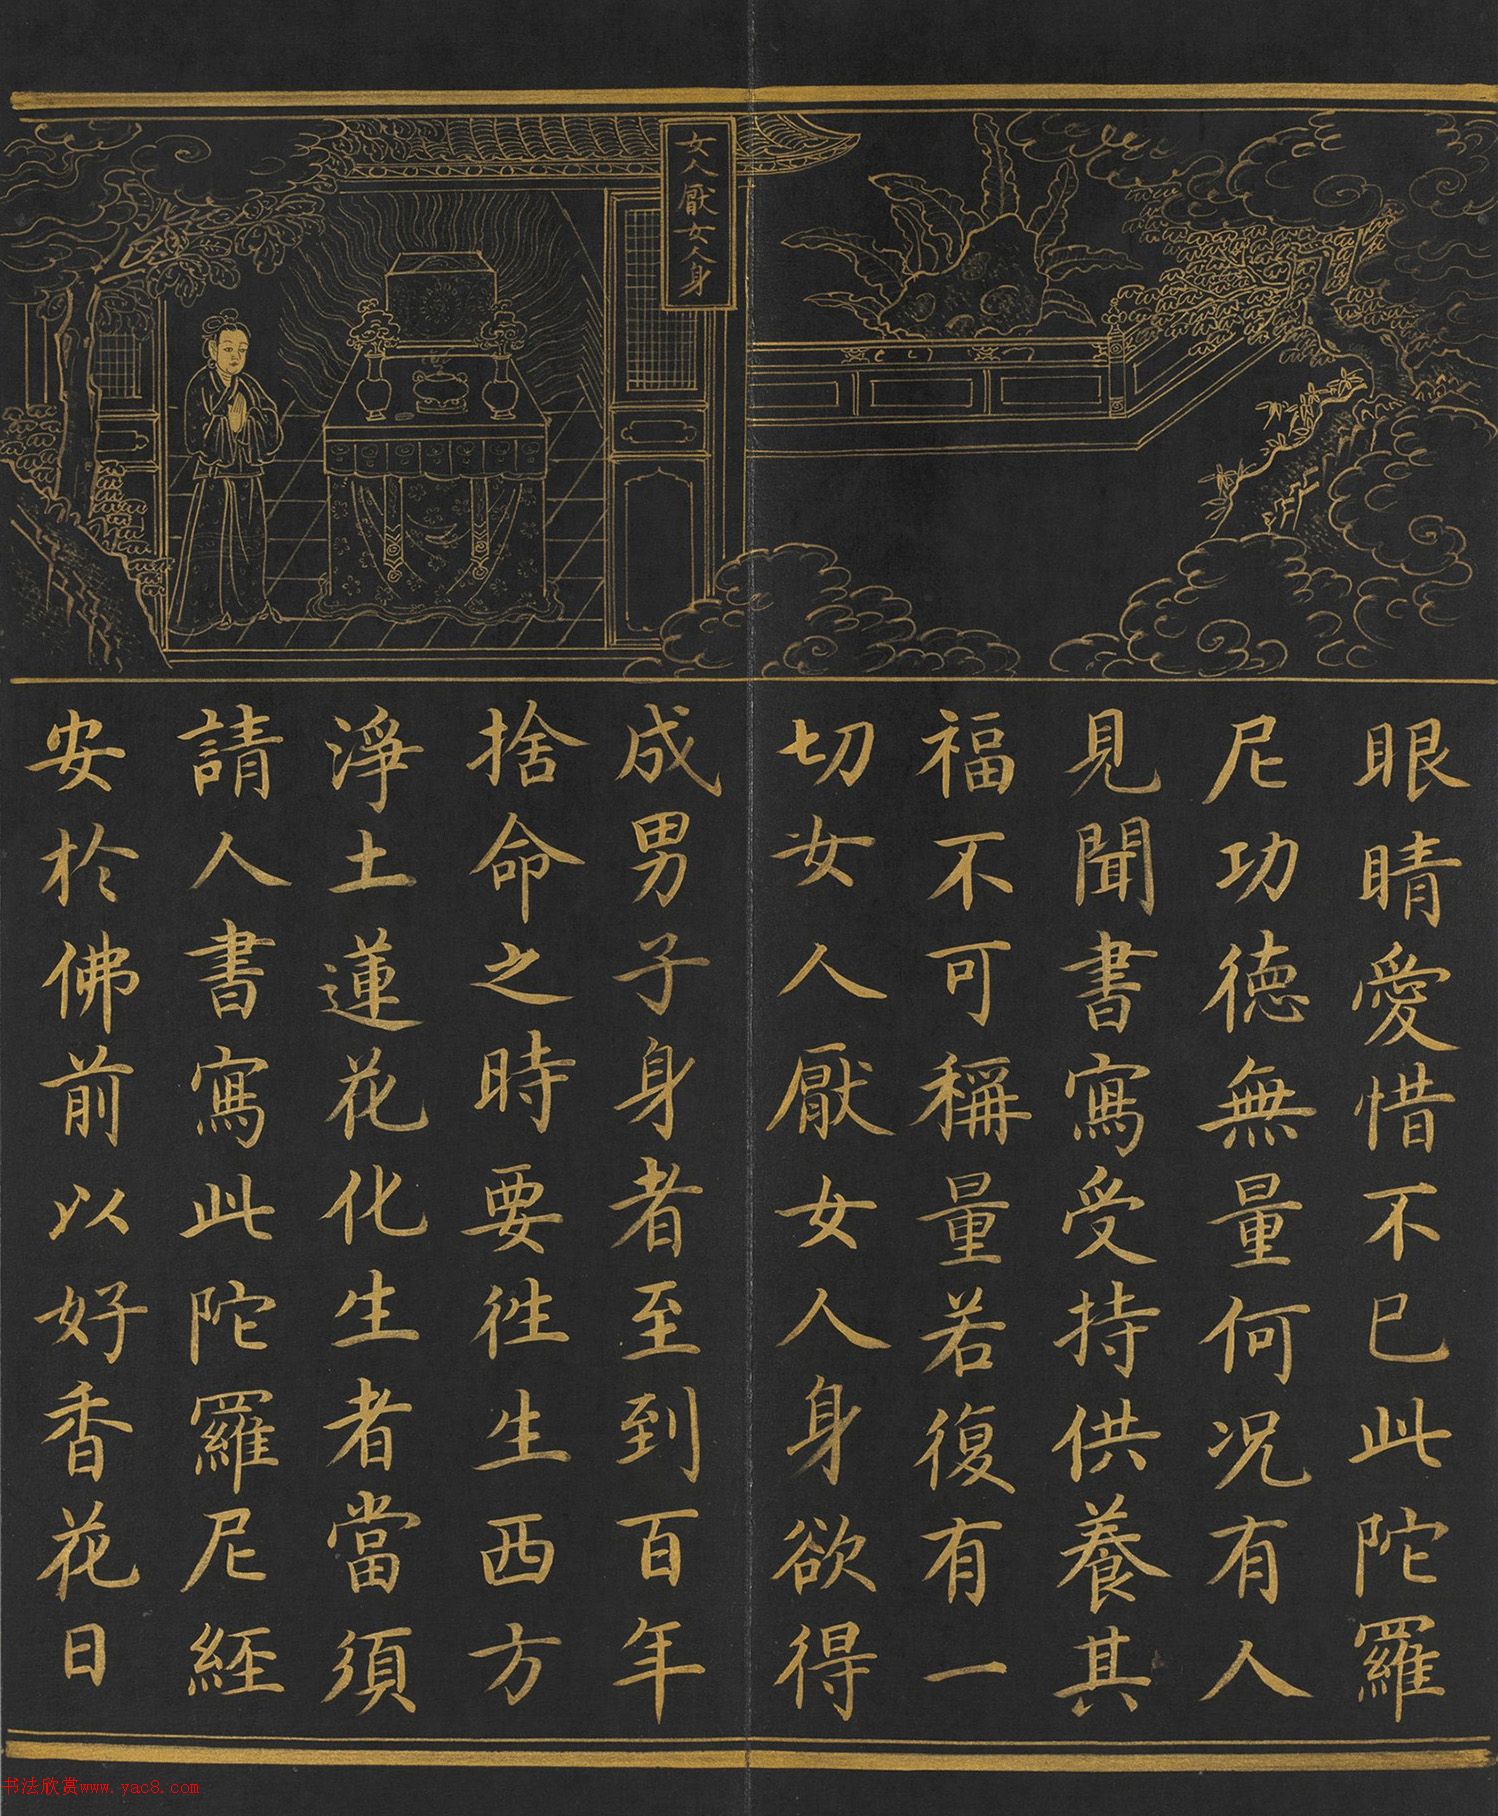 女人厭女人身
眼睛愛惜不已此陀羅
尼功德無量何况有人
見聞書寫受持供養其
福不可稱量若復有一
切女人厭女人身欲得
成男子身者至到百年
捨命之時要徃生西方
淨土蓮花化生者當須
請人書寫此陀羅尼經
安於佛前以好香花日
书法欣赏www.yac8.com